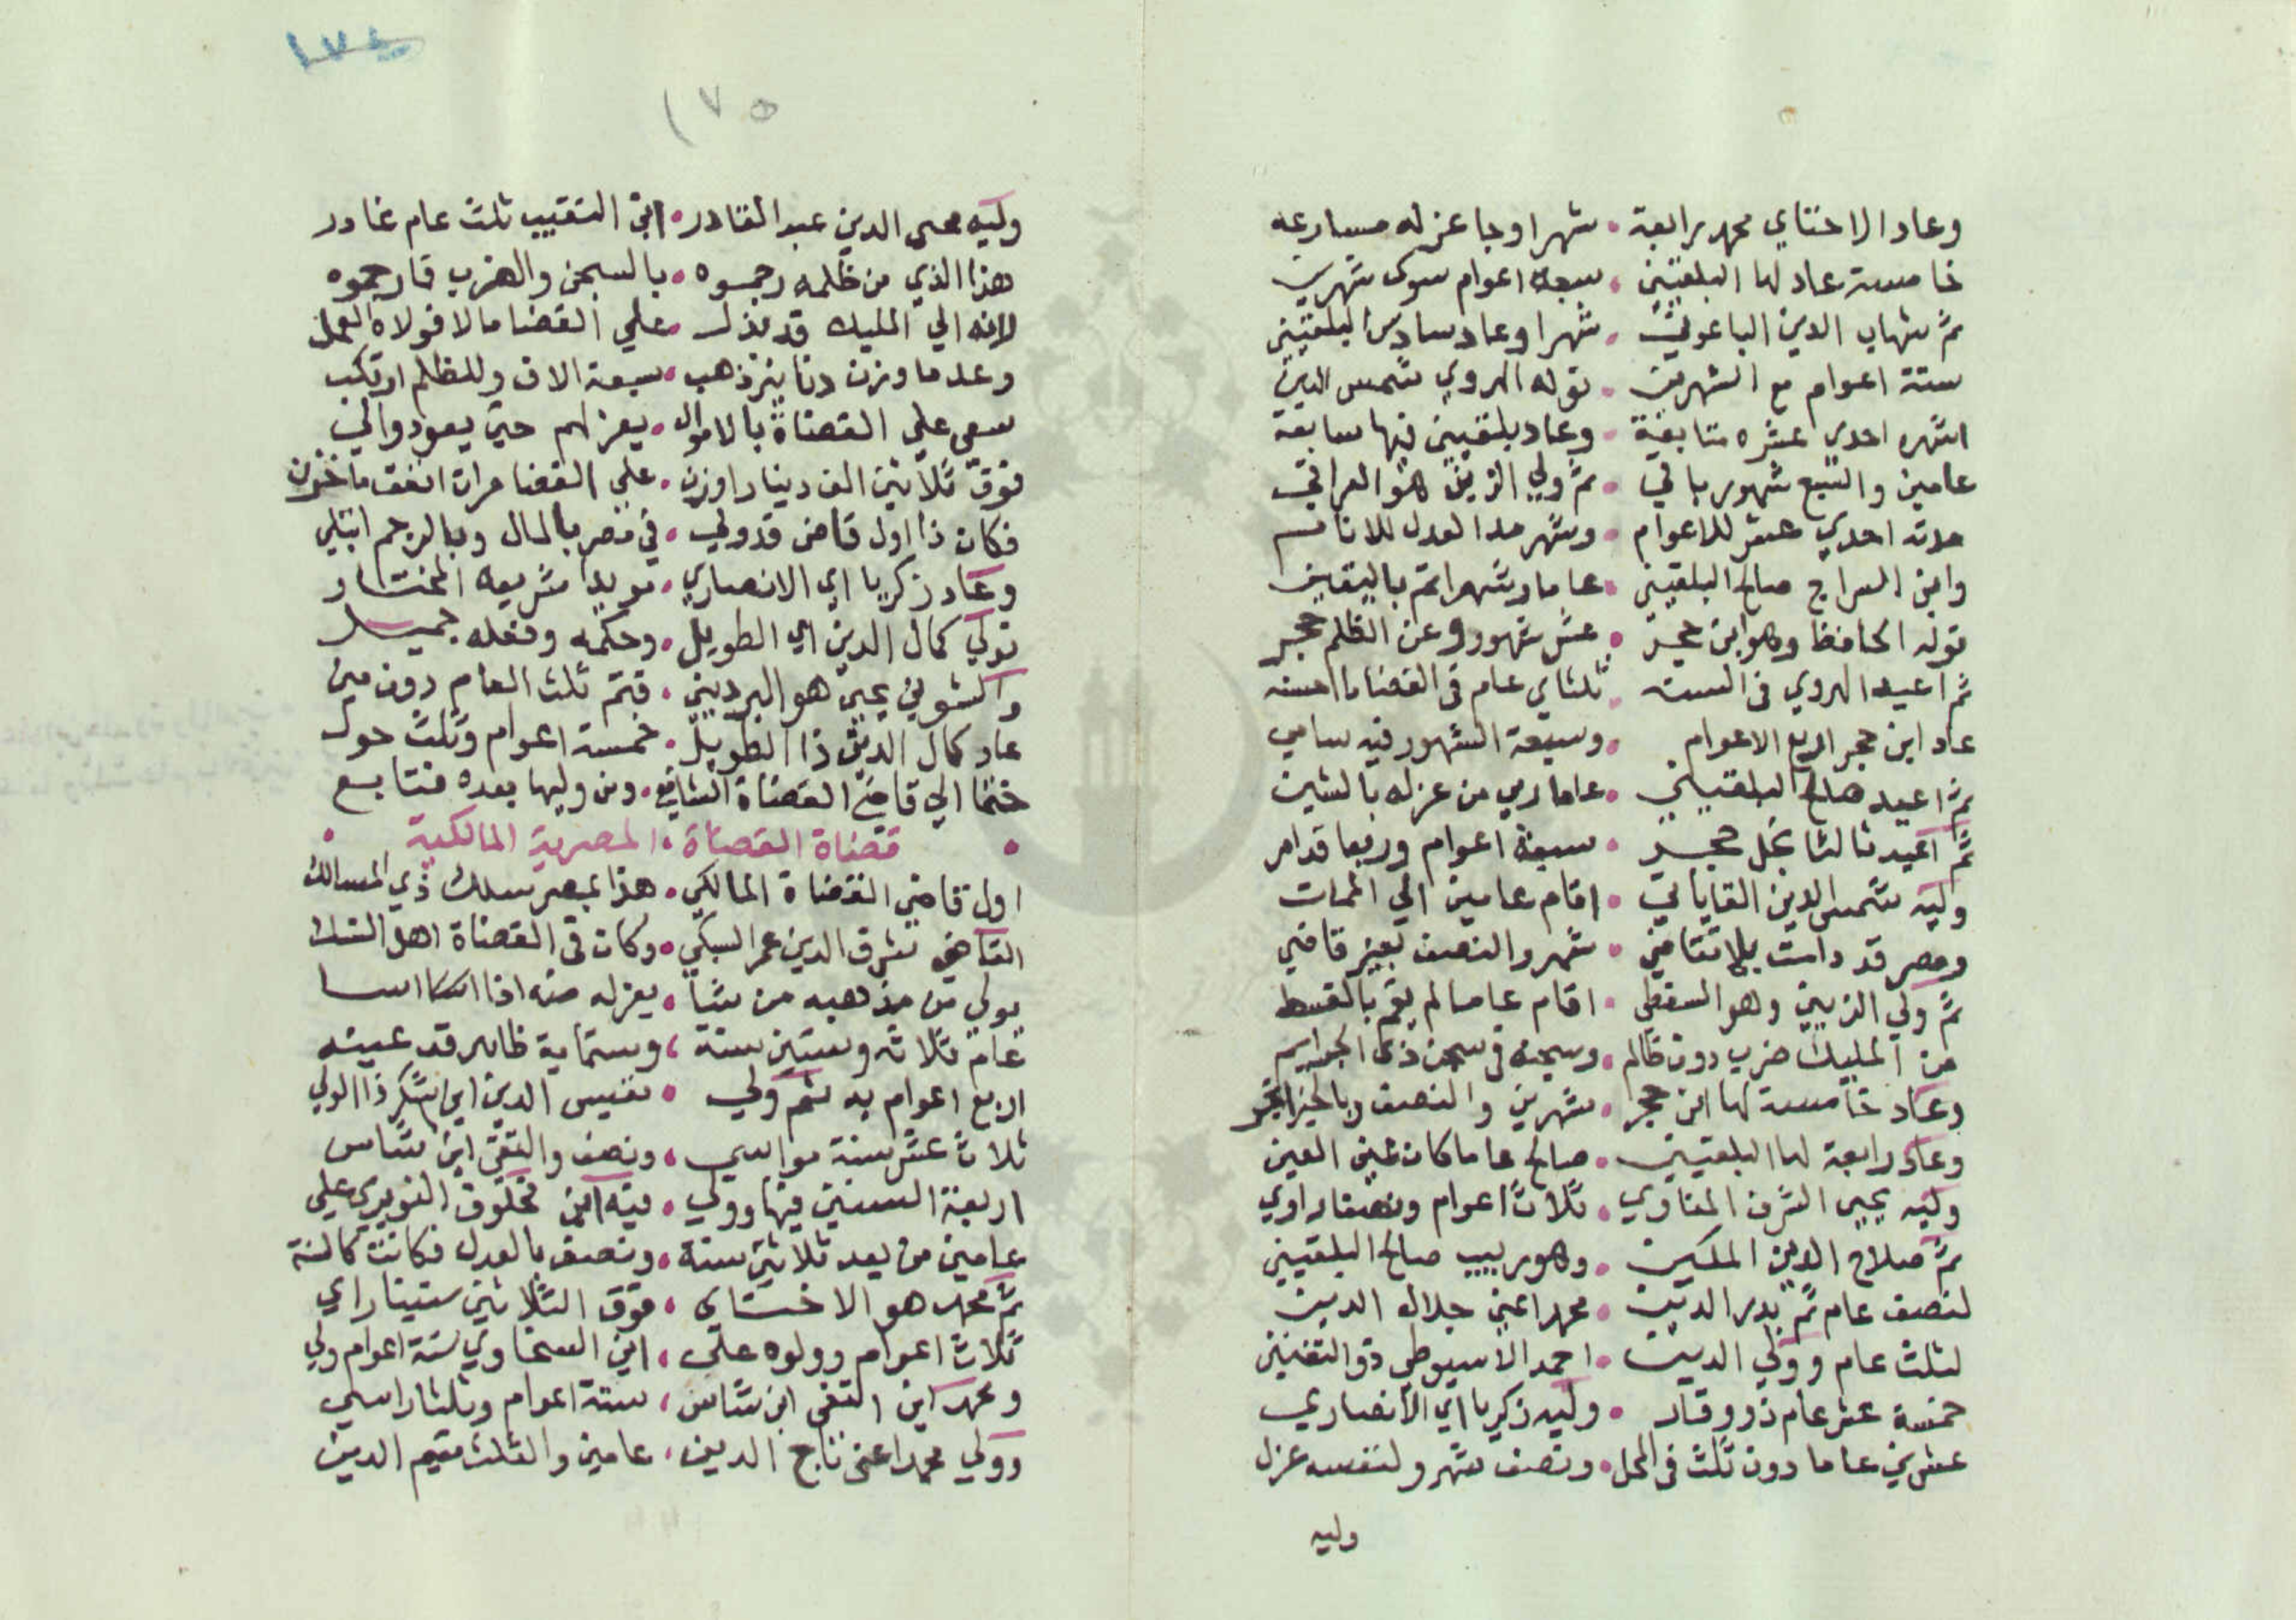 وعاد الاخناي محمد رابعة • شهرا وجا عزله مسارعه
خامسة عاد لها البلقيني • سبعة اعوام سوى شهرين
ثم شهاب الدين الباعوني • شهرا وعاد سادس البلقيني
ستة اعوام مع الشهرين • توله الهروي شمس الدين
اشهره احدي عشره متابعة • وعاد بلقيني فيها سابعة
عامين والتبع شهور باقي • ثم ولي الزين هو العراقي
مدته احدي عشر للاعوام • وشهر مدا لعدل للانام
وابن السراج صالح البلقيني • عاما وشهرا تم باليقين
توله الحافظ وهو ابن حجر • عشر شهور وعن الظلم حجر
ثم اعيد الهروي في السنه • ثلثاي عام في القضا ما احسنه
عاد ابن حجر اربع الاعوام • وسبعة الشهور فيه سامي
ثم اعيد صالح البلقيني • عاما رمي من عزله بالشين
ثم اعيد ثالثا نجل حجر • سبعة اعوام وربعا قد امر
وليه شمس الدين القاياتي • اقام عامين الي الممات
ومصر قد دامت بلا تقاضي • شهر والنصف بغير قاضي
ثم ولي الزين وهو السفطي • اقام عاما لم يقم بالقسط
من المليك ضرب دون ظالم • وسجنه في سجن ذي الجرايم
وعاد خامسة لها ابن حجر • شهرين والنصف وبالخير اتجر
وعاد رابعة لها البلقيني • صالح عاما كان عين العين
وليه يحيى الشرف المناوي • ثلاث اعوام ونصفا راوي
ثم صلاح الدين المكيني • وهو ربيب صالح البلقيني
لنصف عام ثم بدر الدين • محمد اعني جلال الدين
لثلث عام وولي الدين • احمد الاسيوطي ذو التفنين
خمسة عشر عام ذو وقار • وليه زكريا اي الانصاري
عشرين عاما دون ثلث في المحل • ونصف شهر ولنفسه عزل
وليه
١٧٤
١٧٥
وليه محي الدين عبد القادر • ابن النقيب ثلث عام غادر
هذا الذي من ظلمه رجموه • بالسجن والضرب قارحموه
لانه الي المليك قد بذل • علي القضا مالا فولاه العمل
وعد ما وزن دنانير ذهب • سبعة الاف وللظلم ارتكب
سعي علي القضاة بالاموال • يعزلهم حتي يعود والي
فوق ثلاثين الف دينار اوزن • علي القضا مرات انفق ما خزن
فكان ذا اول قاض قد ولي • في مصر بالمال وبالرجم ابتلي
وعاد زكريا اي الانصاري • مويدا شريعة المختار
تولي كمال الدين اي الطويل • وحكمه وفعله جميل
والشوني يحيي هو البرديني • فتم ثلث العام دون مين
عاد كمال الدين ذا الطويل • خمسة اعوام وثلث حول
ختما الي قاضي القضاة الشافعي • ومن وليها بعده فتابع
• قضاة القضاة، المصرية المالكية •
اول قاضي القضاة المالكي • هذا بمصر سلك ذي المسالك
القاضي شرف الدين عمر السبكي • وكان في القضاة اهل النسك
يولي من مذهبه من شا • يعزله منه اذا اسا
عام ثلاثه وستين سنة، وستماية ظاهر قد عينه
اربع اعوام به ثم ولي • نفيس الدين ابن شكر ذا الولي
ثلاث عشر سنة مواسي • ونصف والتقي ابن شاس
اربعة السنين فيها وولي • فيه ابن مخلوف النويري علي
عامين من بعد ثلاثين سنة • ونصف بالعدل فكانت كالسنة
ثم محمد هو الاخناي • فوق الثلاثين ستينا راي
ثلاث اعوام وولوه علي • ابن السخاوي ستة اعوام ولي
ومحمد ابن التقي ابن شاس، ستة اعوام وثلثا راسي
وولي محمد اعني تاج الدين، عامين والثلث مقيم الدين